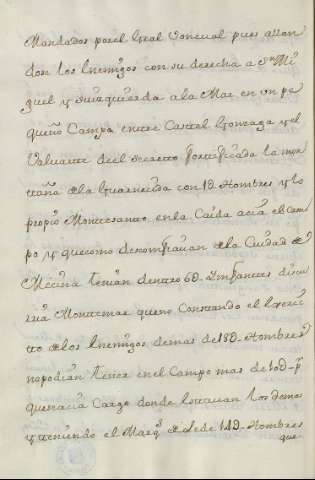 Mandados por el Real Consul pues estan
don los Enemigos con su derecha a Sn Mi
guel y su izquierda a la Mar en un pe
queño Campo entre Castel Gonzaga y el
Valuarte del secreto fortificada la mon
taña de la Guarneuda con 1D. Hombres y lo
propio Montesanto en la Caida acia el Cam
po y que como desconfiauan de la Ciudad de
Mecina tenian dentro 6D. Infantes discu
rria Montemar que no Constando el Exerci
tto de los Enemigos demas de 18D. Hombres
no podian tener en el Campo mas de 10D. pr
que hacia Cargo donde estauan los demas
y teniendo el Marqs. de Lede 14D. Hombres
que